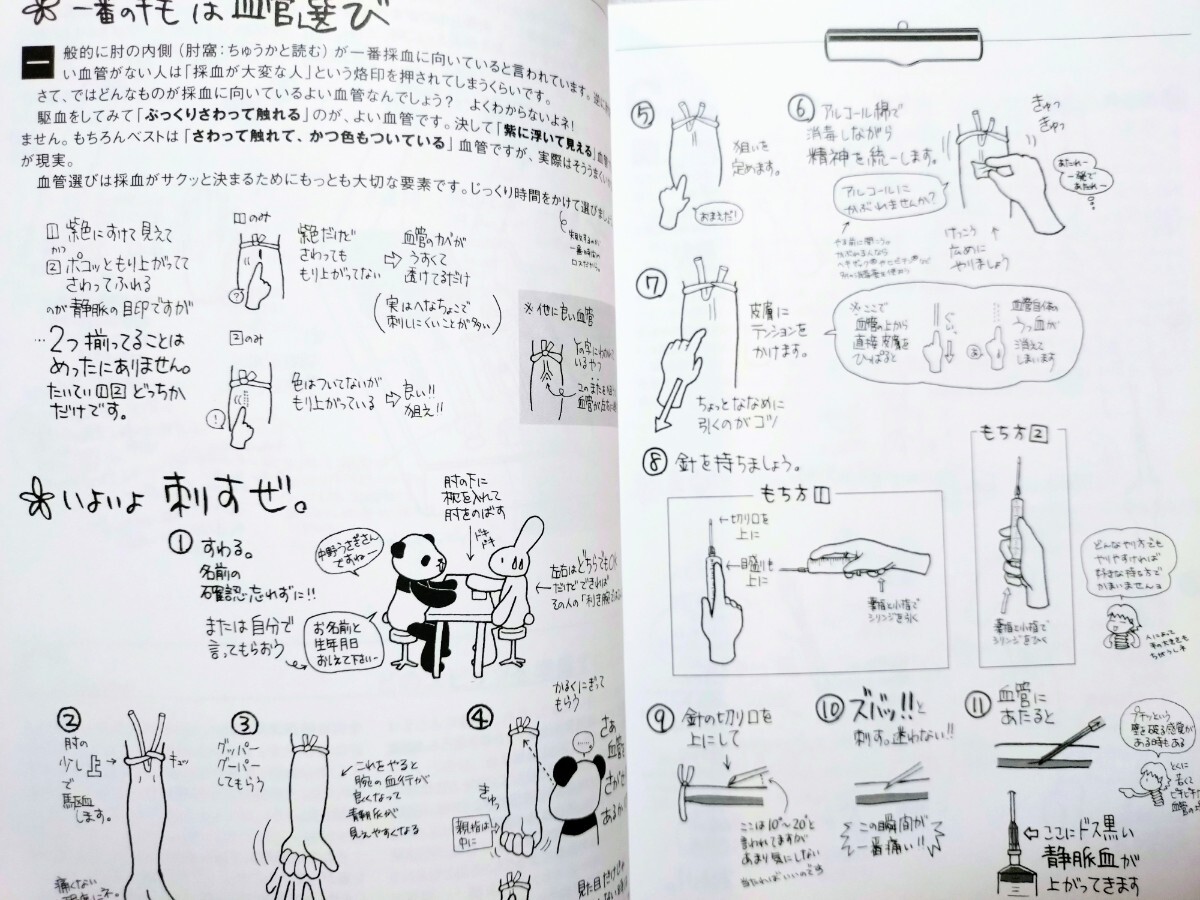 一番のキモは血管選び
一般的に肘の内側（肘窩：ちゅうかと読む）が一番採血に向いていると言われています。逆に
い血管がない人は「採血が大変な人」という烙印を押されてしまうくらいです。
さて、ではどんなものが採血に向いているよい血管なんでしょう？ よくわからないよネ！
駆血をしてみて「ぷっくりさわって触れる」のが、よい血管です。決して「紫に浮いて見える」血管
ません。もちろんベストは「さわって触れて、かつ色もついている」血管ですが、実際はそううまくいか
が現実。
血管選びは採血がサクッと決まるためにもっとも大切な要素です。じっくり時間をかけて選びましょう
1 紫色にすけて見えて
かつ
2 ポコッともり上がってて
さわってふれる
のが静脈の目印ですが
…2つ揃ってることは
めったにありません。
たいてい12どっちか
だけです。
1のみ
?
紫色だけど
さわっても
もり上がってない
⇨
血管のカベが
うすくて
透けてるだけ
(実はへなちょこで
刺しにくいことが多い)
2のみ
!
色はついてないが
もり上がっている
⇨
良い!!
狙え!!
※他に良い血管
いるやつ
いよいよ 刺すぜ。
① すわる。
名前の
確認忘れずに!!
または自分で
言ってもらおう
中野うさぎさん
ですねー
お名前と
生年月日
おしえて下さいー
肘の下に
枕を入れて
肘をのばす
ドキ
ドキ
左右はどちらでもOK
だけどできれば
②
肘の
少し上
で
駆血
します。
キュッ
③
グッパー
グーパー
してもらう
これをやると
腕の血行が
良くなって
静脈が
見えやすくなる
④
かるくにぎって
もらう
きゅっ
親指は
中に
さあ
血管
さがせ
あるか
痛くない
見ただけじゃ
⑤
狙いを
定めます。
おまえだ!
⑥ アルコール綿で
消毒しながら
精神を統一します。
きゅっ
きゅっ
あたれー
一発で
あたれー
アルコールに
かぶれませんか?
けっこう
広めに
やりましょう
⑦
皮膚に
テンションを
かけます。
ちょっとななめに
引くのがコツ
※ここで
血管の上から
直接皮膚を
ひっぱると
血管自体の
うっ血が
消えて
しまいます
⑧ 針を持ちましょう。
もち方1
←切り口を
上に
←目盛りも
上に
薬指と小指で
シリンジを引く
もち方2
薬指と小指で
シリンジをひく
どんなやり方でも
やりやすければ
好きな持ち方で
かまいませんョ
人によって
手の大きさも
ちがうしネ
⑨ 針の切り口を
上にして
ここは10°〜20°と
言われてますが
あまり気にしない
当たればいいのです
⑩ ズバッ!!と
刺す。迷わない!!
この瞬間が
一番痛い!!
⑪ 血管に
あたると
プチッという
壁を破る感覚が
ある時もある
とくに
若くて
ピチピチ
血管の
⇦ここにドス黒い
静脈血が
上がってきます